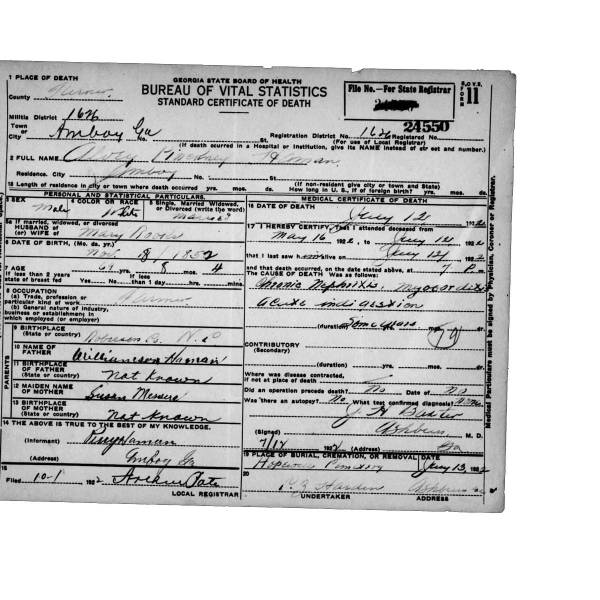 1 PLACE OF DEATH
GEORGIA STATE BOARD OF HEALTH
BUREAU OF VITAL STATISTICS
STANDARD CERTIFICATE OF DEATH
File No.—For State Registrar
24550
FORM 11
County
Militia District 1626
Town or City Amboy Ga No. St.
Registration District No. 1626 Registered No.
(For use of Local Registrar)
(If death occurred in a Hospital or Institution, give its NAME instead of street and number.)
2 FULL NAME
Residence. City Amboy No. St.
(If non-resident give city or town and State)
Length of residence in city or town where death occurred yrs. mos. ds.
How long in U. S., if of foreign birth? yrs. mos. ds.
PERSONAL AND STATISTICAL PARTICULARS.
3 SEX Male
4 COLOR OR RACE White
5 Single, Married, Widowed, or Divorced (write the word) Married
5a If married, widowed, or divorced
HUSBAND of
(or) WIFE of Mary
6 DATE OF BIRTH (Mo. da. yr.) Nov. 8 1852
7 AGE 69 yrs. 8 mos. 4
If less than 2 years state if breast fed Yes No
If less than 1 day hrs. mins.
8 OCCUPATION
(a) Trade, profession or particular kind of work Farmer
(b) General nature of industry, business or establishment in which employed (or employer)
PARENTS
9 BIRTHPLACE
(State or country) Robeson Co. N. C
10 NAME OF FATHER
11 BIRTHPLACE OF FATHER
(State or country) Not Known
12 MAIDEN NAME OF MOTHER Susan
13 BIRTHPLACE OF MOTHER
(State or country) Not Known
14 THE ABOVE IS TRUE TO THE BEST OF MY KNOWLEDGE.
(Informant)
(Address) Amboy Ga
15
Filed 10-1 1922
LOCAL REGISTRAR
MEDICAL CERTIFICATE OF DEATH
16 DATE OF DEATH July 12 1922
17 I HEREBY CERTIFY, That I attended deceased from
May 16 1922, to July 12 1922
that I last saw him alive on July 12 1922
and that death occurred, on the date stated above, at 7 P m.
The CAUSE OF DEATH Was as follows:
Chronic Nephritis. Myocarditis
acute indigestion
(duration) Some years mos. ds.
79
CONTRIBUTORY
(Secondary)
(duration) yrs. mos. ds.
Where was disease contracted,
if not at place of death
Did an operation precede death? No Date of No
Was there an autopsy? No What test confirmed diagnosis?
(Signed) M. D.
7/17 1922 (Address) Ashburn Ga
19 PLACE OF BURIAL, CREMATION, OR REMOVAL DATE
Hopewell Cemetery July 13, 1922
20
UNDERTAKER ADDRESS
Medical Particulars must be signed by Physician, Coroner or Registrar.